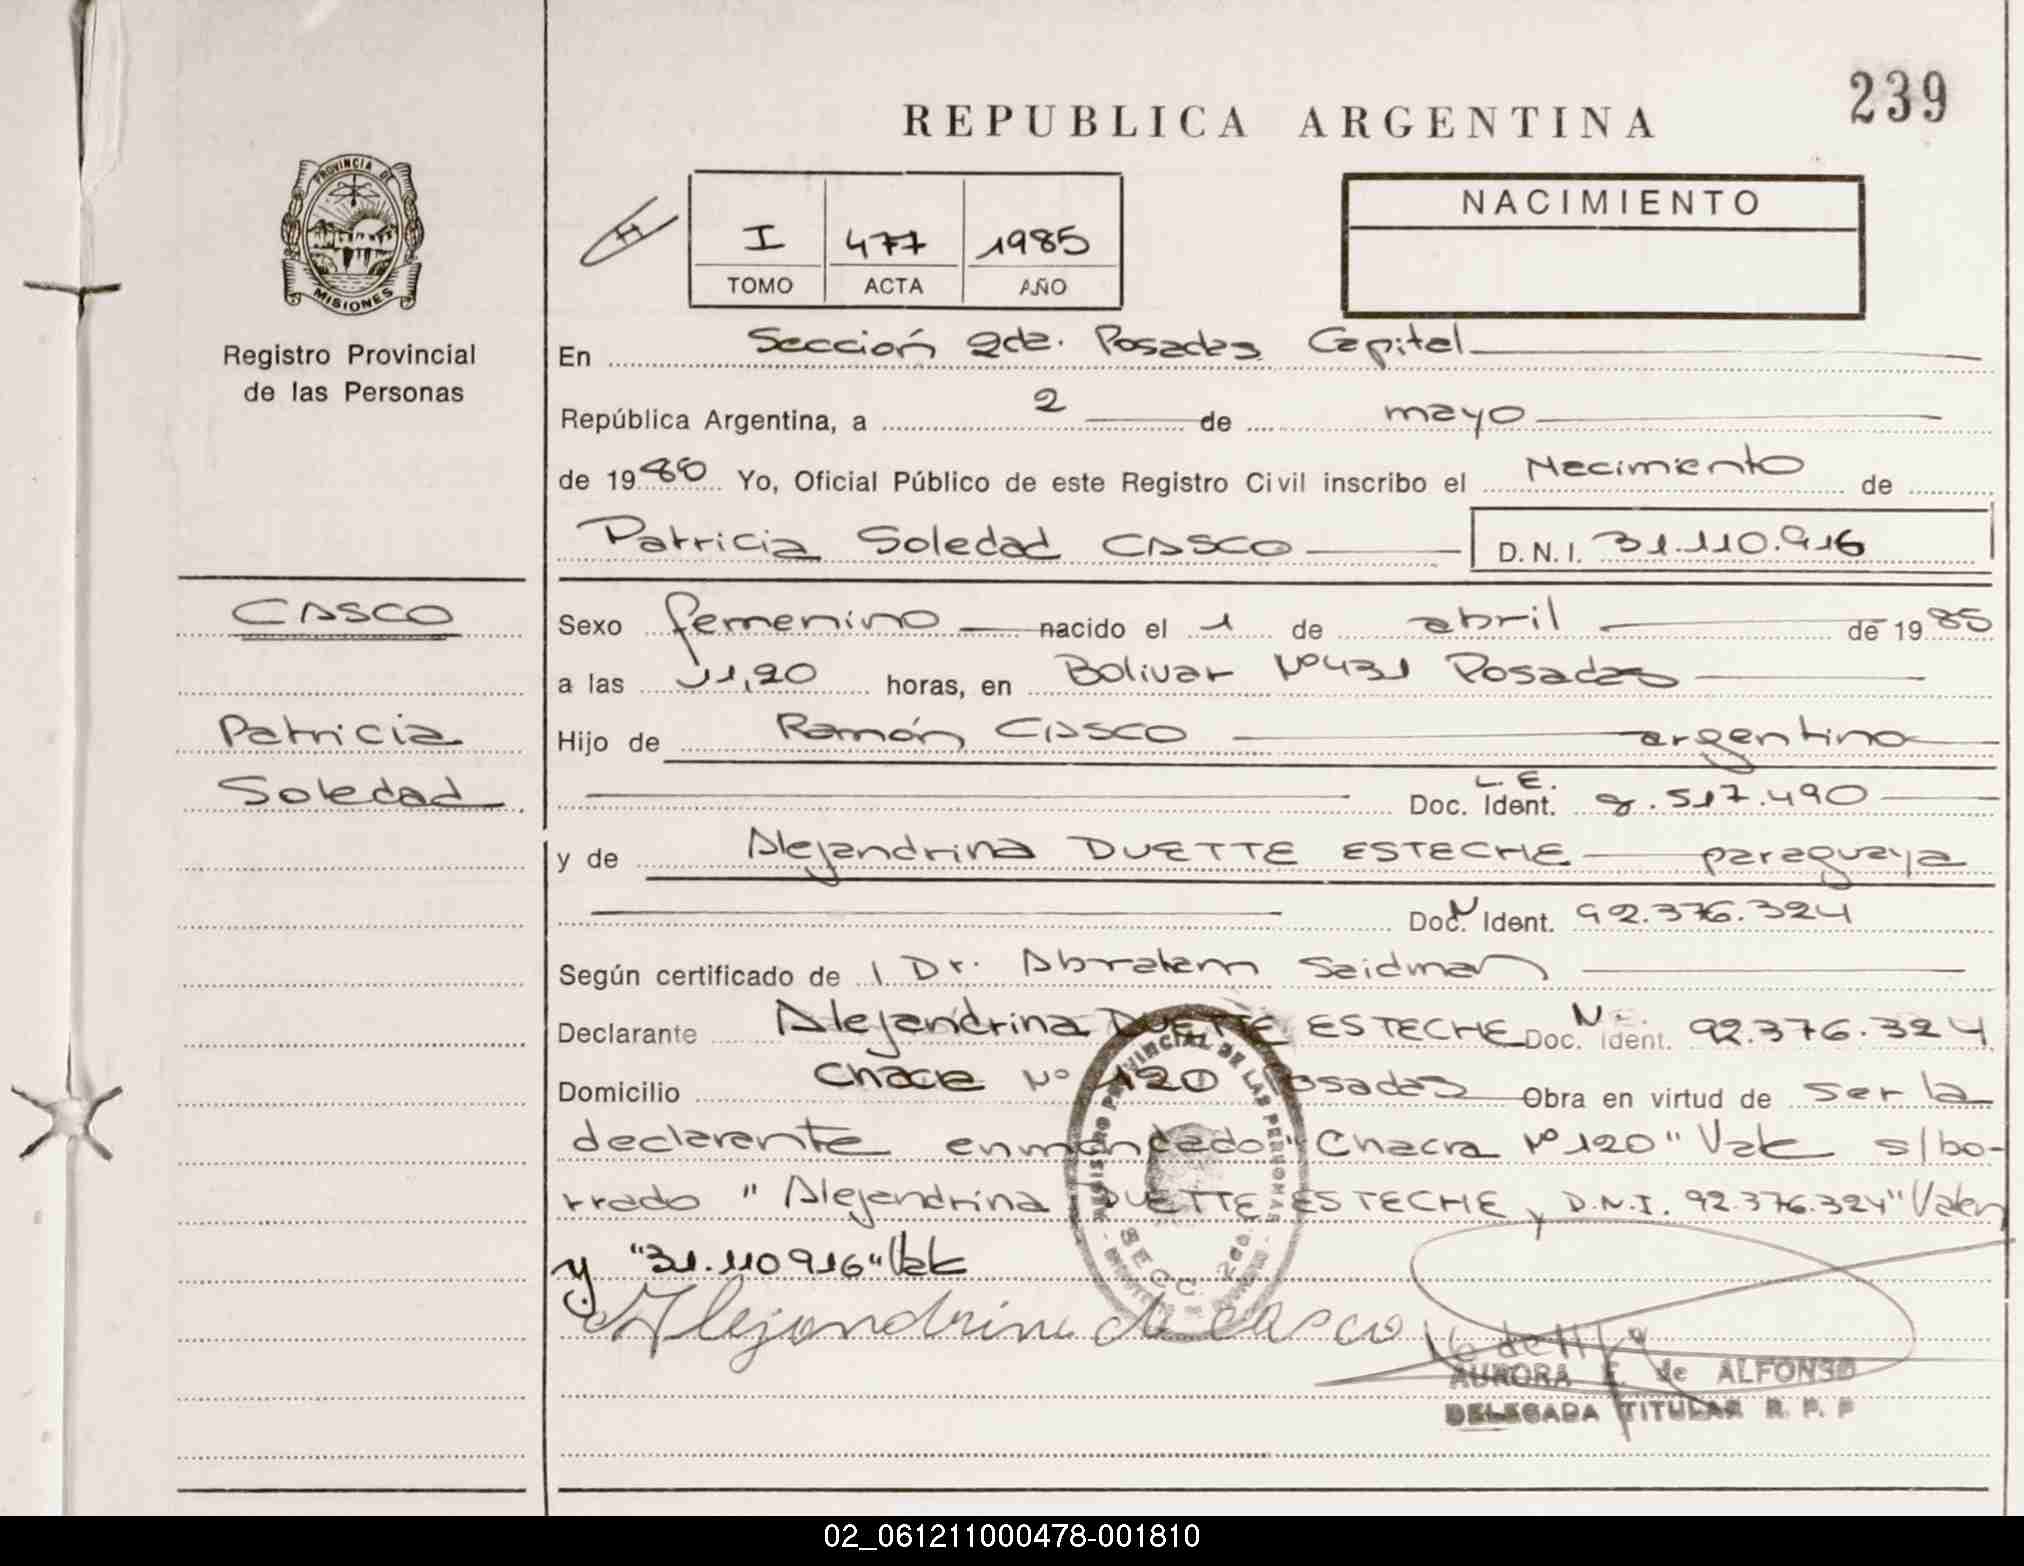 239
REPUBLICA ARGENTINA
PROVINCIA DE
MISIONES
Registro Provincial
de las Personas
I 477 1985
TOMO ACTA AÑO
NACIMIENTO
En Sección 2da. Posadas Capital
República Argentina, a 2 de mayo
de 1980 Yo, Oficial Público de este Registro Civil inscribo el Nacimiento de
Patricia Soledad CASCO D.N.I. 31.110.916
CASCO
Patricia
Soledad
Sexo femenino nacido el 1 de abril de 1985
a las 11,20 horas, en Bolivar Nº 431 Posadas
Hijo de Ramón CASCO argentino
L.E.
Doc. Ident. 8.517.490
y de Alejandrina DUETTE ESTECHE paraguaya
Doc. Ident. 92.376.324
Según certificado de Dr. Abraham Seidman
Declarante Alejandrina DUETTE ESTECHE Doc. Ident. 92.376.324
Domicilio Chacra Nº 120 Posadas Obra en virtud de ser la
declarante enmendado "Chacra Nº 120" Vale s/bo-
rrado "Alejandrina DUETTE ESTECHE y D.N.I. 92.376.324" Valen
y "31.110916" Vale
Alejandrina de casco
REGISTRO PROVINCIAL DE LAS PERSONAS
SECC. 2da.
AURORA E. de ALFONSO
DELEGADA TITULAR R. P. P
02_061211000478-001810